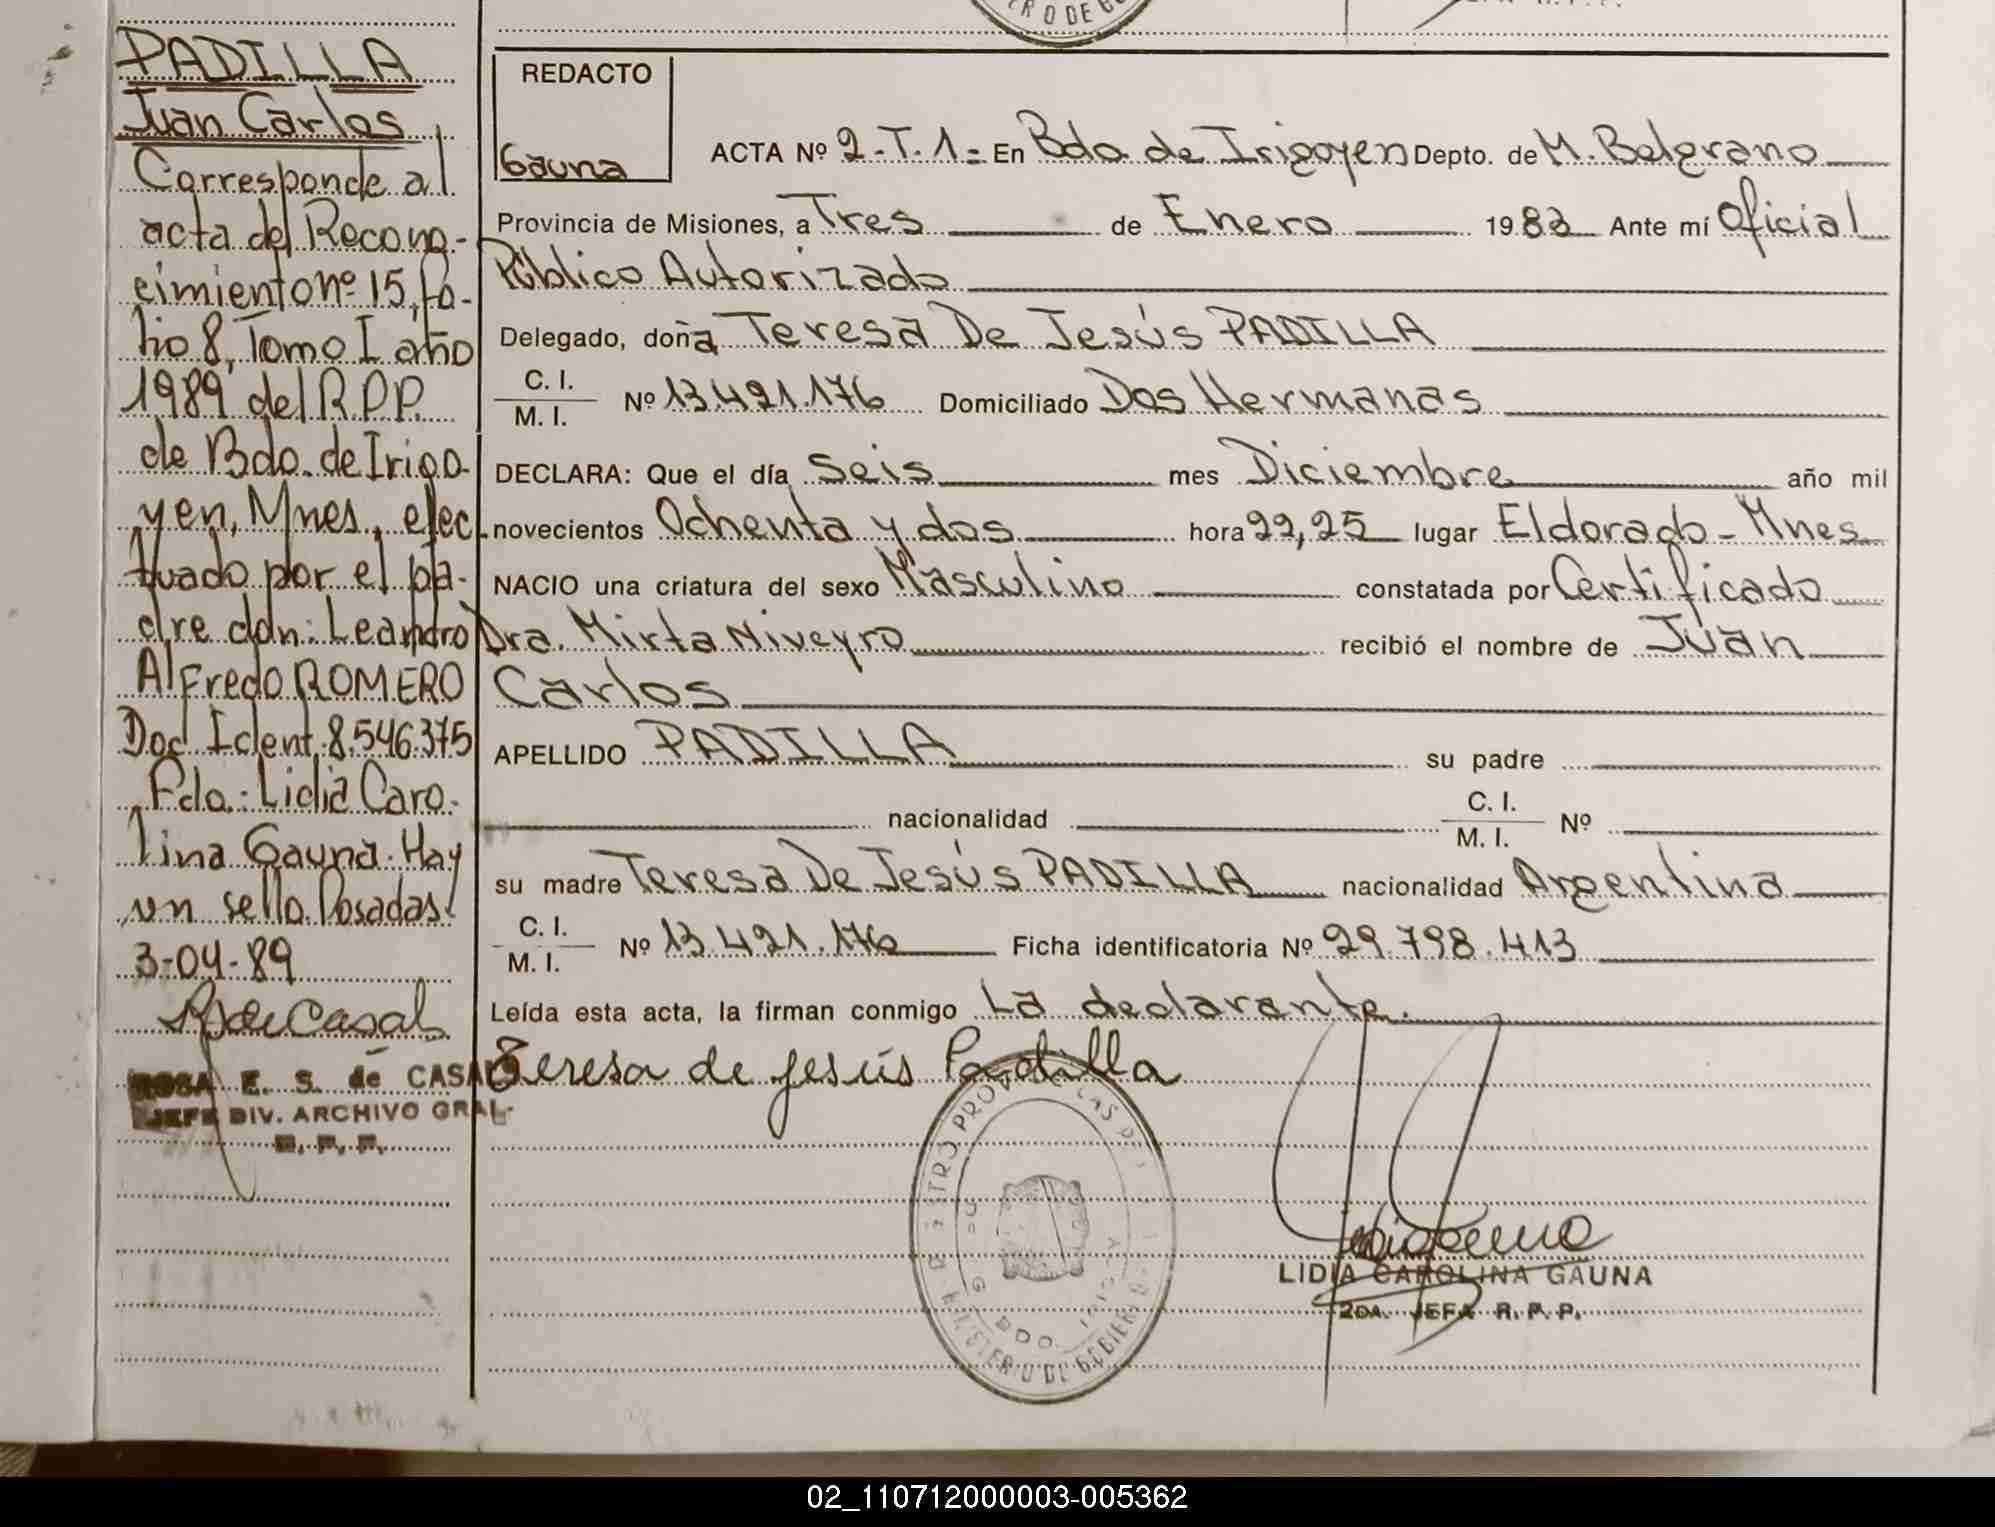 PADILLA
Juan Carlos
Corresponde al
acta de Recono-
cimiento nº 15, fo-
lio 8, Tomo I año
1989 del R.P.P.
de Bdo. de Irigo-
yen, Mnes., efec
tuado por el pa-
dre don: Leandro
Alfredo ROMERO
Doc Ident. 8.546.375
Fdo.: Lidia Caro-
lina Gauna. Hay
un sello. Posadas!
3-04-89
R de Casal
ROSA E. S. de CASAL
JEFE DIV. ARCHIVO GRAL.
R. P. P.
REDACTO
Gauna
ACTA Nº 2-T.1= En Bdo. de Irigoyen Depto. de M. Belgrano
Provincia de Misiones, a Tres de Enero 1983 Ante mí Oficial
Público Autorizado
Delegado, doña Teresa De Jesús PADILLA
C. I.
M. I. Nº 13.421.176 Domiciliado Dos Hermanas
DECLARA: Que el día Seis mes Diciembre año mil
novecientos Ochenta y dos hora 22,25 lugar Eldorado - Mnes
NACIO una criatura del sexo Masculino constatada por Certificado
Dra. Mirta Niveyro recibió el nombre de Juan
Carlos
APELLIDO PADILLA su padre
nacionalidad C. I.
M. I. Nº
su madre Teresa De Jesús PADILLA nacionalidad Argentina
C. I.
M. I. Nº 13.421.176 Ficha identificatoria Nº 29.798.413
Leída esta acta, la firman conmigo La declarante.
Teresa de Jesús Padilla
MINISTERIO DE GOBIERNO
LIDIA CAROLINA GAUNA
2DA. JEFA R. P. P.
02_110712000003-005362